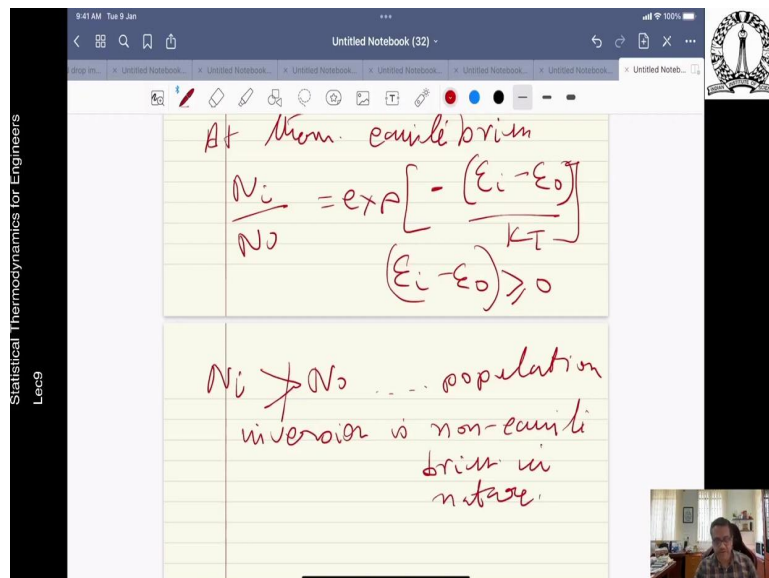 9:41 AM Tue 9 Jan
100%
Untitled Notebook (32)
drop im...
× Untitled Notebook...
× Untitled Notebook...
× Untitled Notebook...
× Untitled Notebook...
× Untitled Notebook...
× Untitled Notebook...
× Untitled Noteb...
Statistical Thermodynamics for Engineers
Lec9
At therm. equilibrium
Ni/N0 = exp[-(εi-ε0)/KT]
(εi-ε0) ≥ 0
Ni ≯ N0 .... population
inversion is non-equili
brium in
nature.